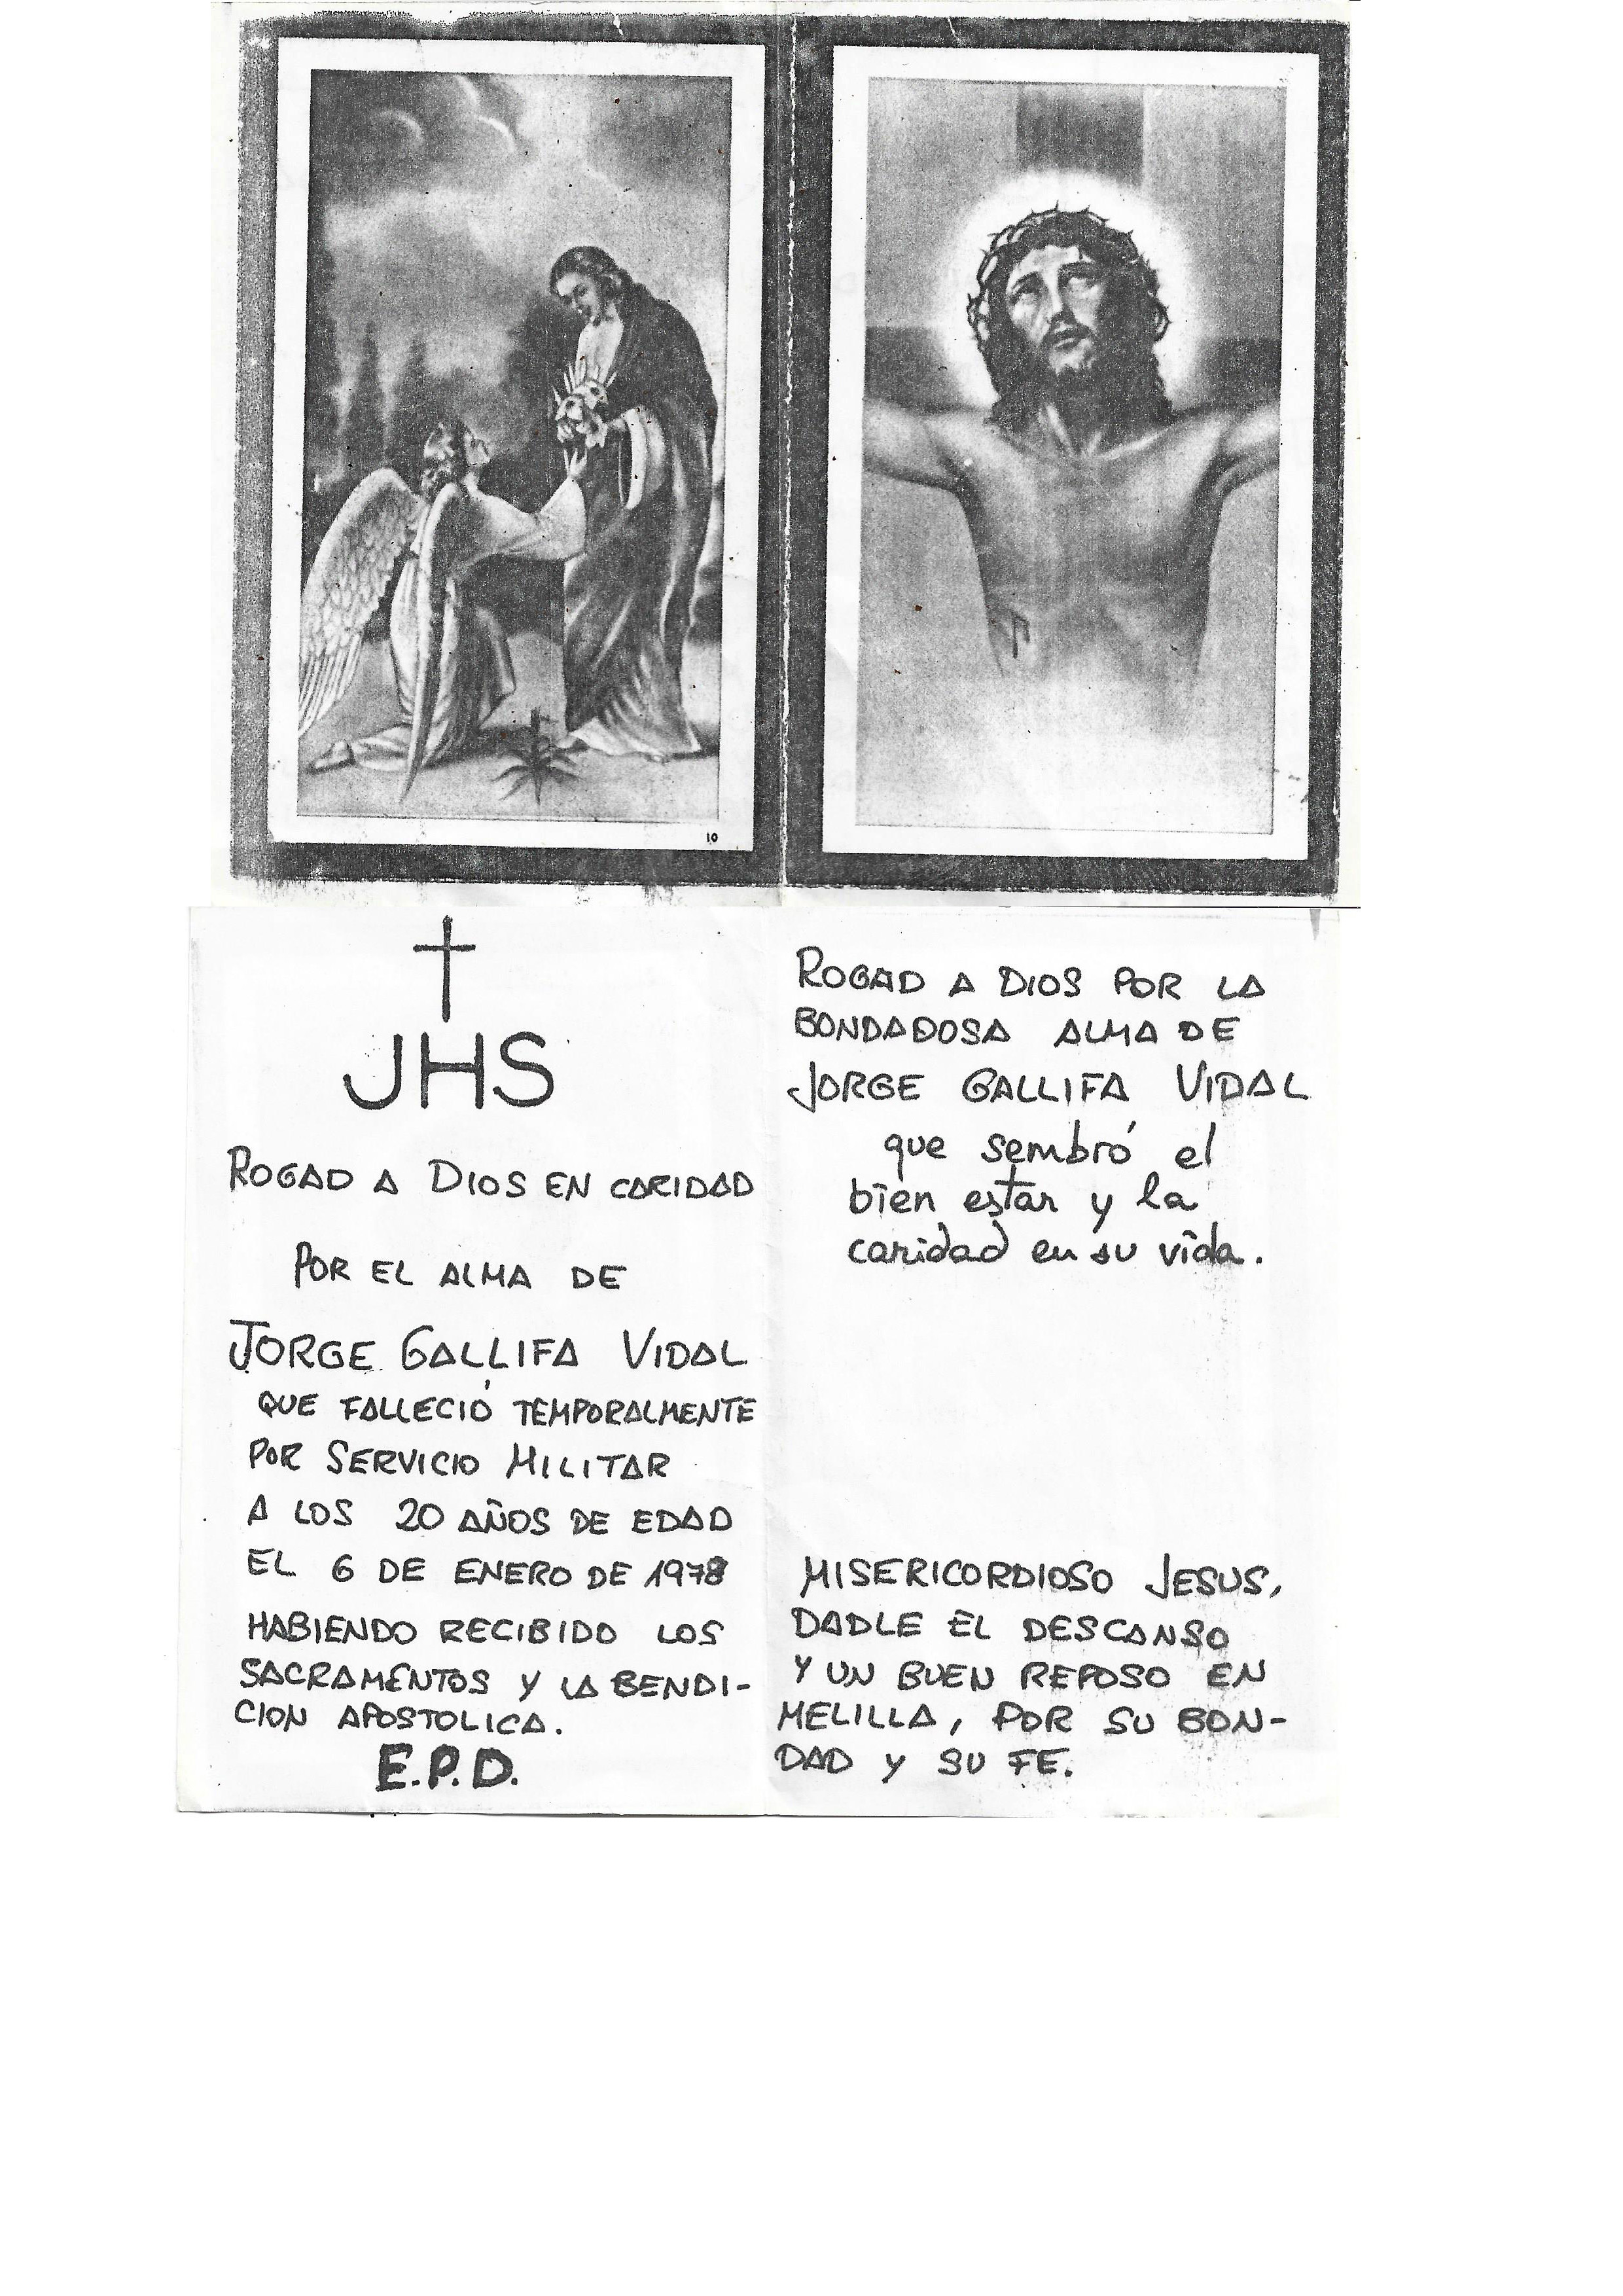 10
JHS
ROGAD A DIOS EN CARIDAD
POR EL ALMA DE
JORGE GALLIFA VIDAL
QUE FALLECIÓ TEMPORALMENTE
POR SERVICIO MILITAR
A LOS 20 AÑOS DE EDAD
EL 6 DE ENERO DE 1978
HABIENDO RECIBIDO LOS
SACRAMENTOS Y LA BENDI-
CION APOSTOLICA.
E.P.D.
ROGAD A DIOS POR LA
BONDADOSA ALMA DE
JORGE GALLIFA VIDAL
que sembró el
bien estar y la
caridad en su vida.
MISERICORDIOSO JESUS,
DADLE EL DESCANSO
Y UN BUEN REPOSO EN
MELILLA, POR SU BON-
DAD Y SU FE.